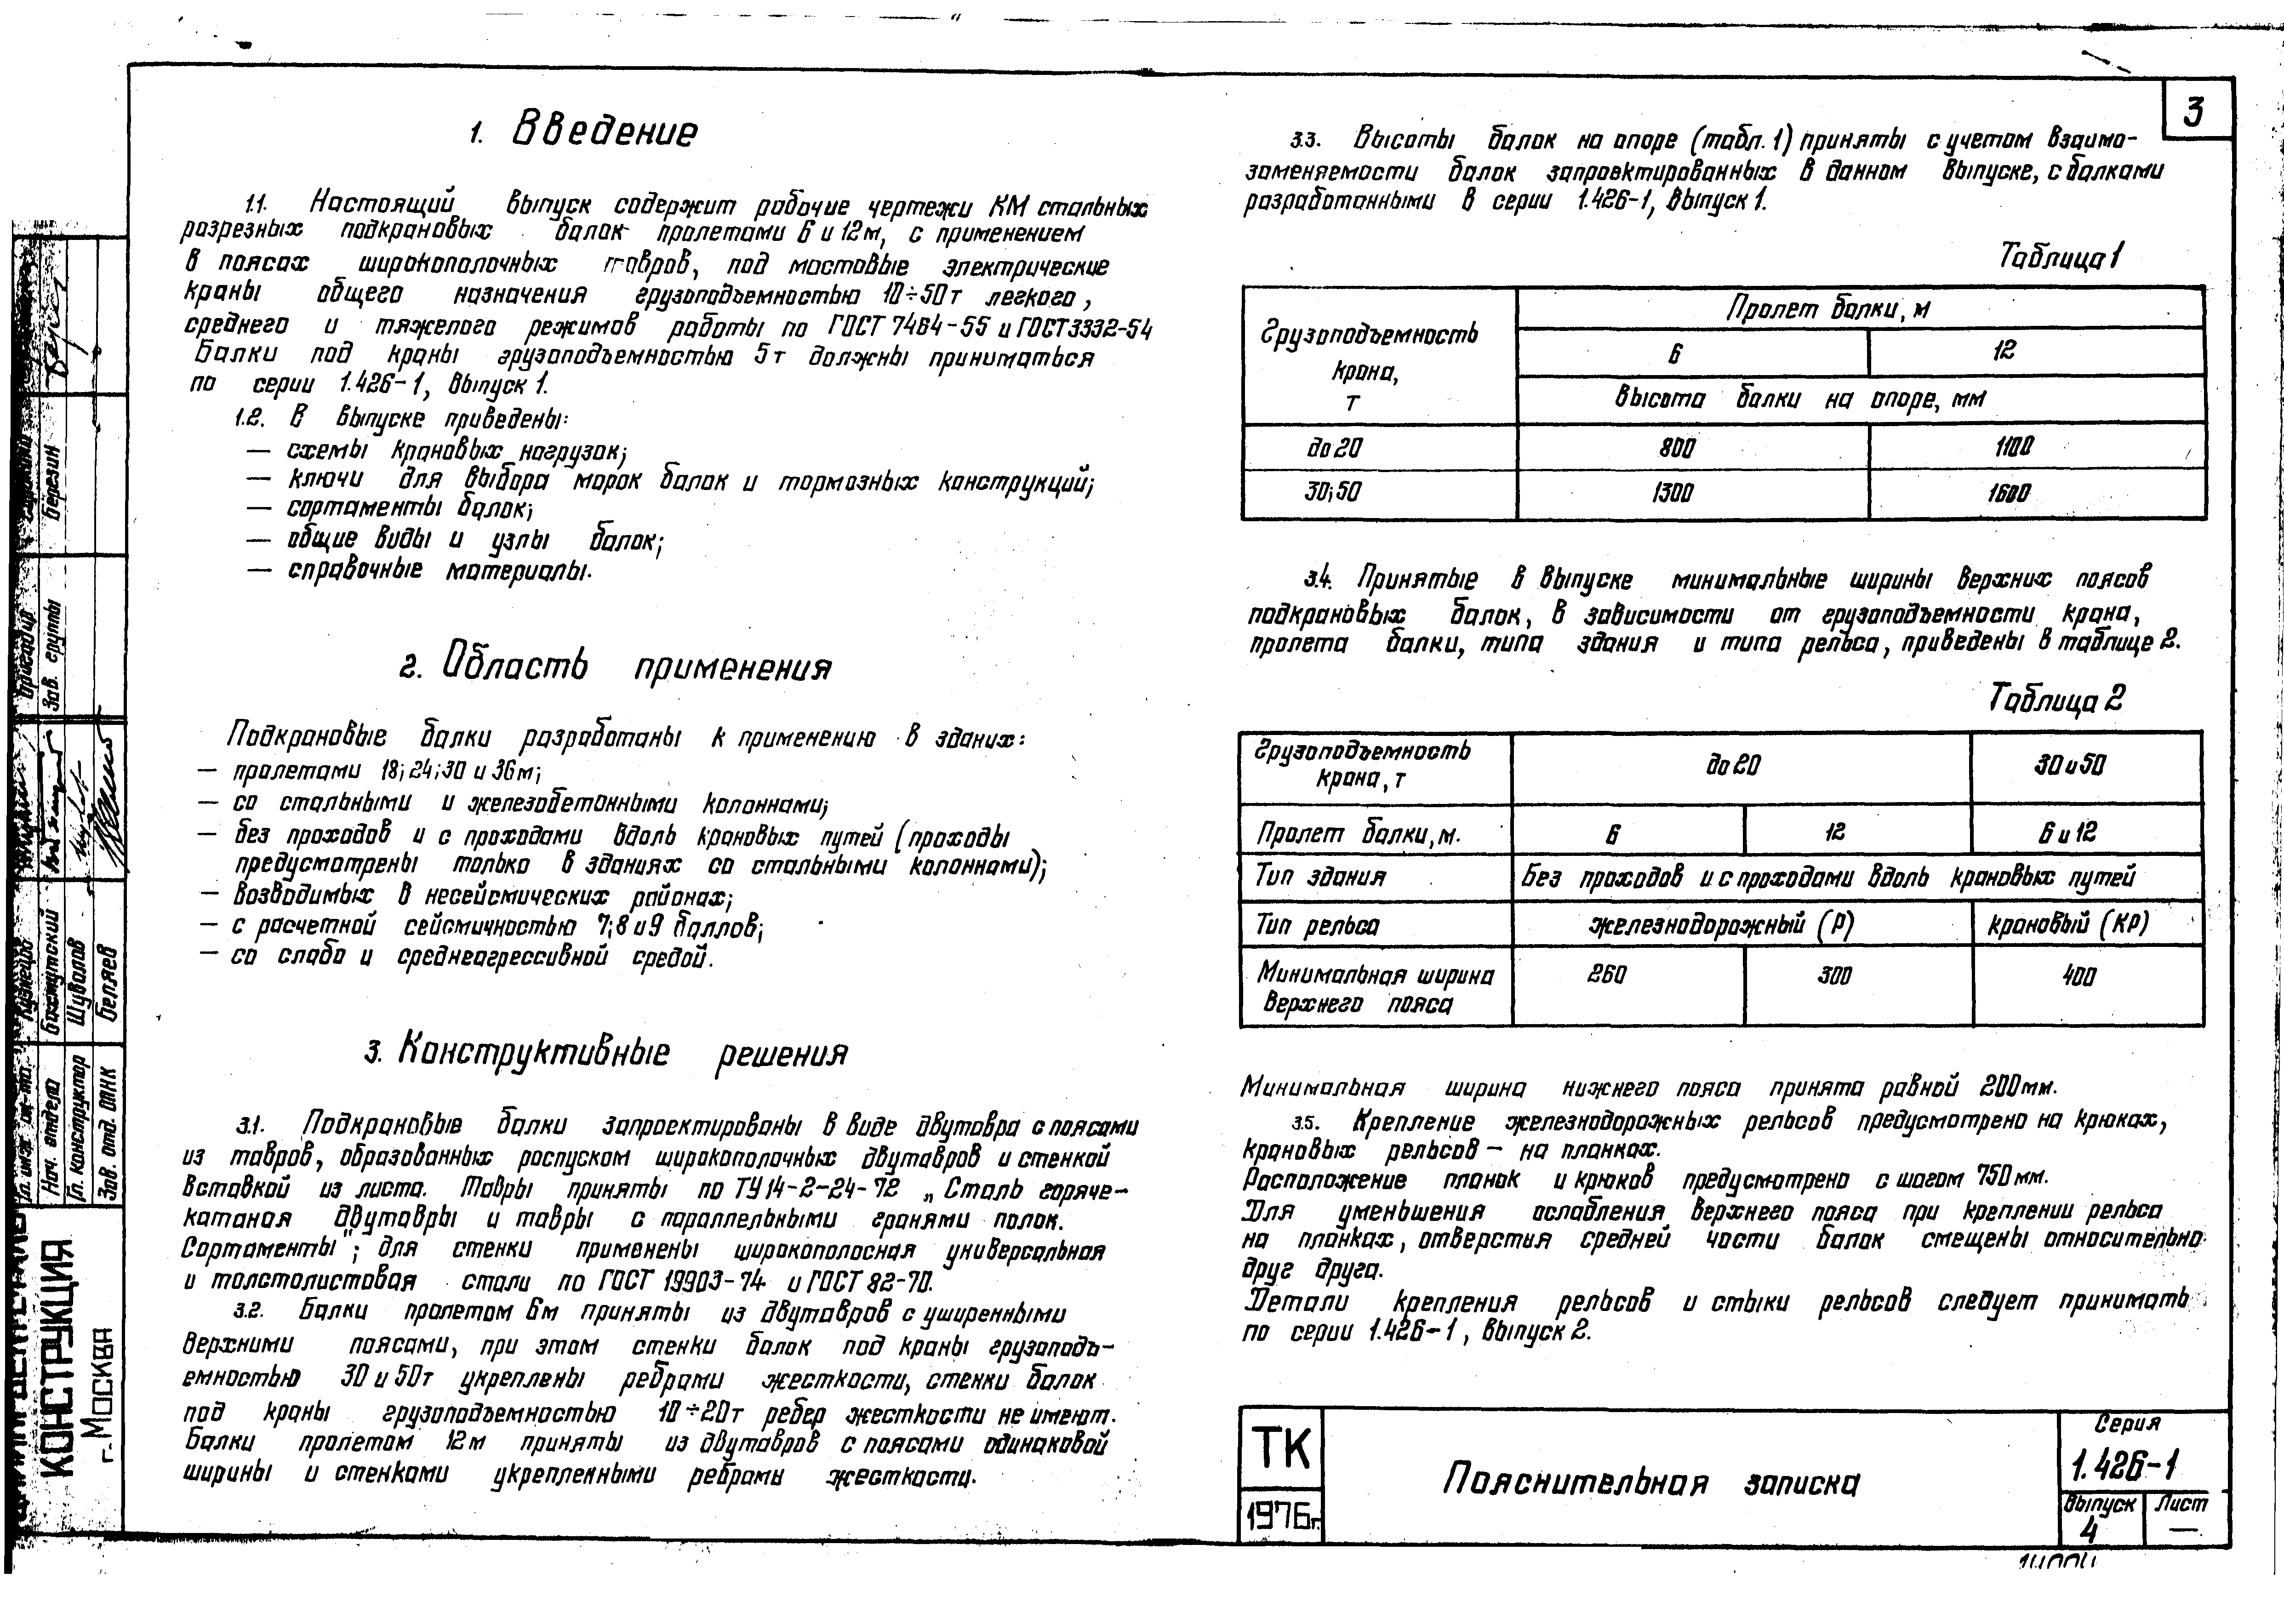 3
1. Введение
1.1. Настоящий выпуск содержит рабочие чертежи КМ стальных
разрезных подкрановых балок пролетами 6 и 12м, с применением
в поясах широкополочных тавров, под мостовые электрические
краны общего назначения грузоподъемностью 10÷50т легкого,
среднего и тяжелого режимов работы по ГОСТ 7464-55 и ГОСТ 3332-54
Балки под краны грузоподъемностью 5т должны приниматься
по серии 1.426-1, выпуск 1.
1.2. В выпуске приведены:
— схемы крановых нагрузок;
— ключи для выбора марок балок и тормозных конструкций;
— сортаменты балок;
— общие виды и узлы балок;
— справочные материалы.
2. Область применения
Подкрановые балки разработаны к применению в зданих:
— пролетами 18; 24; 30 и 36м;
— со стальными и железобетонными колоннами;
— без проходов и с проходами вдоль крановых путей (проходы
предусмотрены только в зданиях со стальными колоннами);
— возводимых в несейсмических районах;
— с расчетной сейсмичностью 7; 8 и 9 баллов;
— со слабо и среднеагрессивной средой.
3. Конструктивные решения
3.1. Подкрановые балки запроектированы в виде двутавра с поясами
из тавров, образованных роспуском широкополочных двутавров и стенкой
вставкой из листа. Тавры приняты по ТУ 14-2-24-72 „Сталь горяче-
катаная двутавры и тавры с параллельными гранями полок.
Сортаменты"; для стенки применены широкополосная универсальная
и толстолистовая стали по ГОСТ 19903-74 и ГОСТ 82-70.
3.2. Балки пролетом 6м приняты из двутавров с уширенными
верхними поясами, при этом стенки балок под краны грузоподъ-
емностью 30 и 50т укреплены ребрами жесткости, стенки балок
под краны грузоподъемностью 10÷20т ребер жесткости не имеют.
Балки пролетом 12м приняты из двутавров с поясами одинаковой
ширины и стенками укрепленными ребрами жесткости.
3.3. Высоты балок на опоре (табл. 1) приняты с учетом взаимо-
заменяемости балок запроектированных в данном выпуске, с балками
разработанными в серии 1.426-1, выпуск 1.
Таблица 1
Грузоподъемность крана, т
Пролет балки, м
6 12
Высота балки на опоре, мм
до 20 800 1100
30; 50 1300 1600
3.4. Принятые в выпуске минимальные ширины верхних поясов
подкрановых балок, в зависимости от грузоподъемности крана,
пролета балки, типа здания и типа рельса, приведены в таблице 2.
Таблица 2
Грузоподъемность крана, т до 20 30 и 50
Пролет балки, м. 6 12 6 и 12
Тип здания Без проходов и с проходами вдоль крановых путей
Тип рельса железнодорожный (Р) крановый (КР)
Минимальная ширина верхнего пояса 260 300 400
Минимальная ширина нижнего пояса принята равной 200мм.
3.5. Крепление железнодорожных рельсов предусмотрено на крюках,
крановых рельсов — на планках.
Расположение планок и крюков предусмотрено с шагом 750мм.
Для уменьшения ослабления верхнего пояса при креплении рельса
на планках, отверстия средней части балок смещены относительно
друг друга.
Детали крепления рельсов и стыки рельсов следует принимать
по серии 1.426-1, выпуск 2.
ТК
1976г.
Пояснительная записка
Серия
1.426-1
Выпуск Лист
4 —
Бригадир
Зав. группы Березин
Нач. отдела Бахмутский
Гл. конструктор Шувалов
Зав. отд. ОПНК Беляев
КОНСТРУКЦИЯ
г. Москва